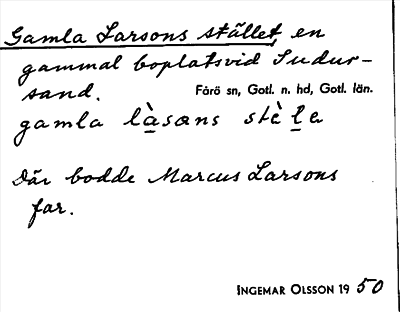 Gamla Larsons stället, en
gammal boplatsvid Sudur-
sand.
Fårö sn, Gotl. n. hd, Gotl. län.
gamla làsans stèle
Där bodde Marcus Larsons
far.
INGEMAR OLSSON 1950